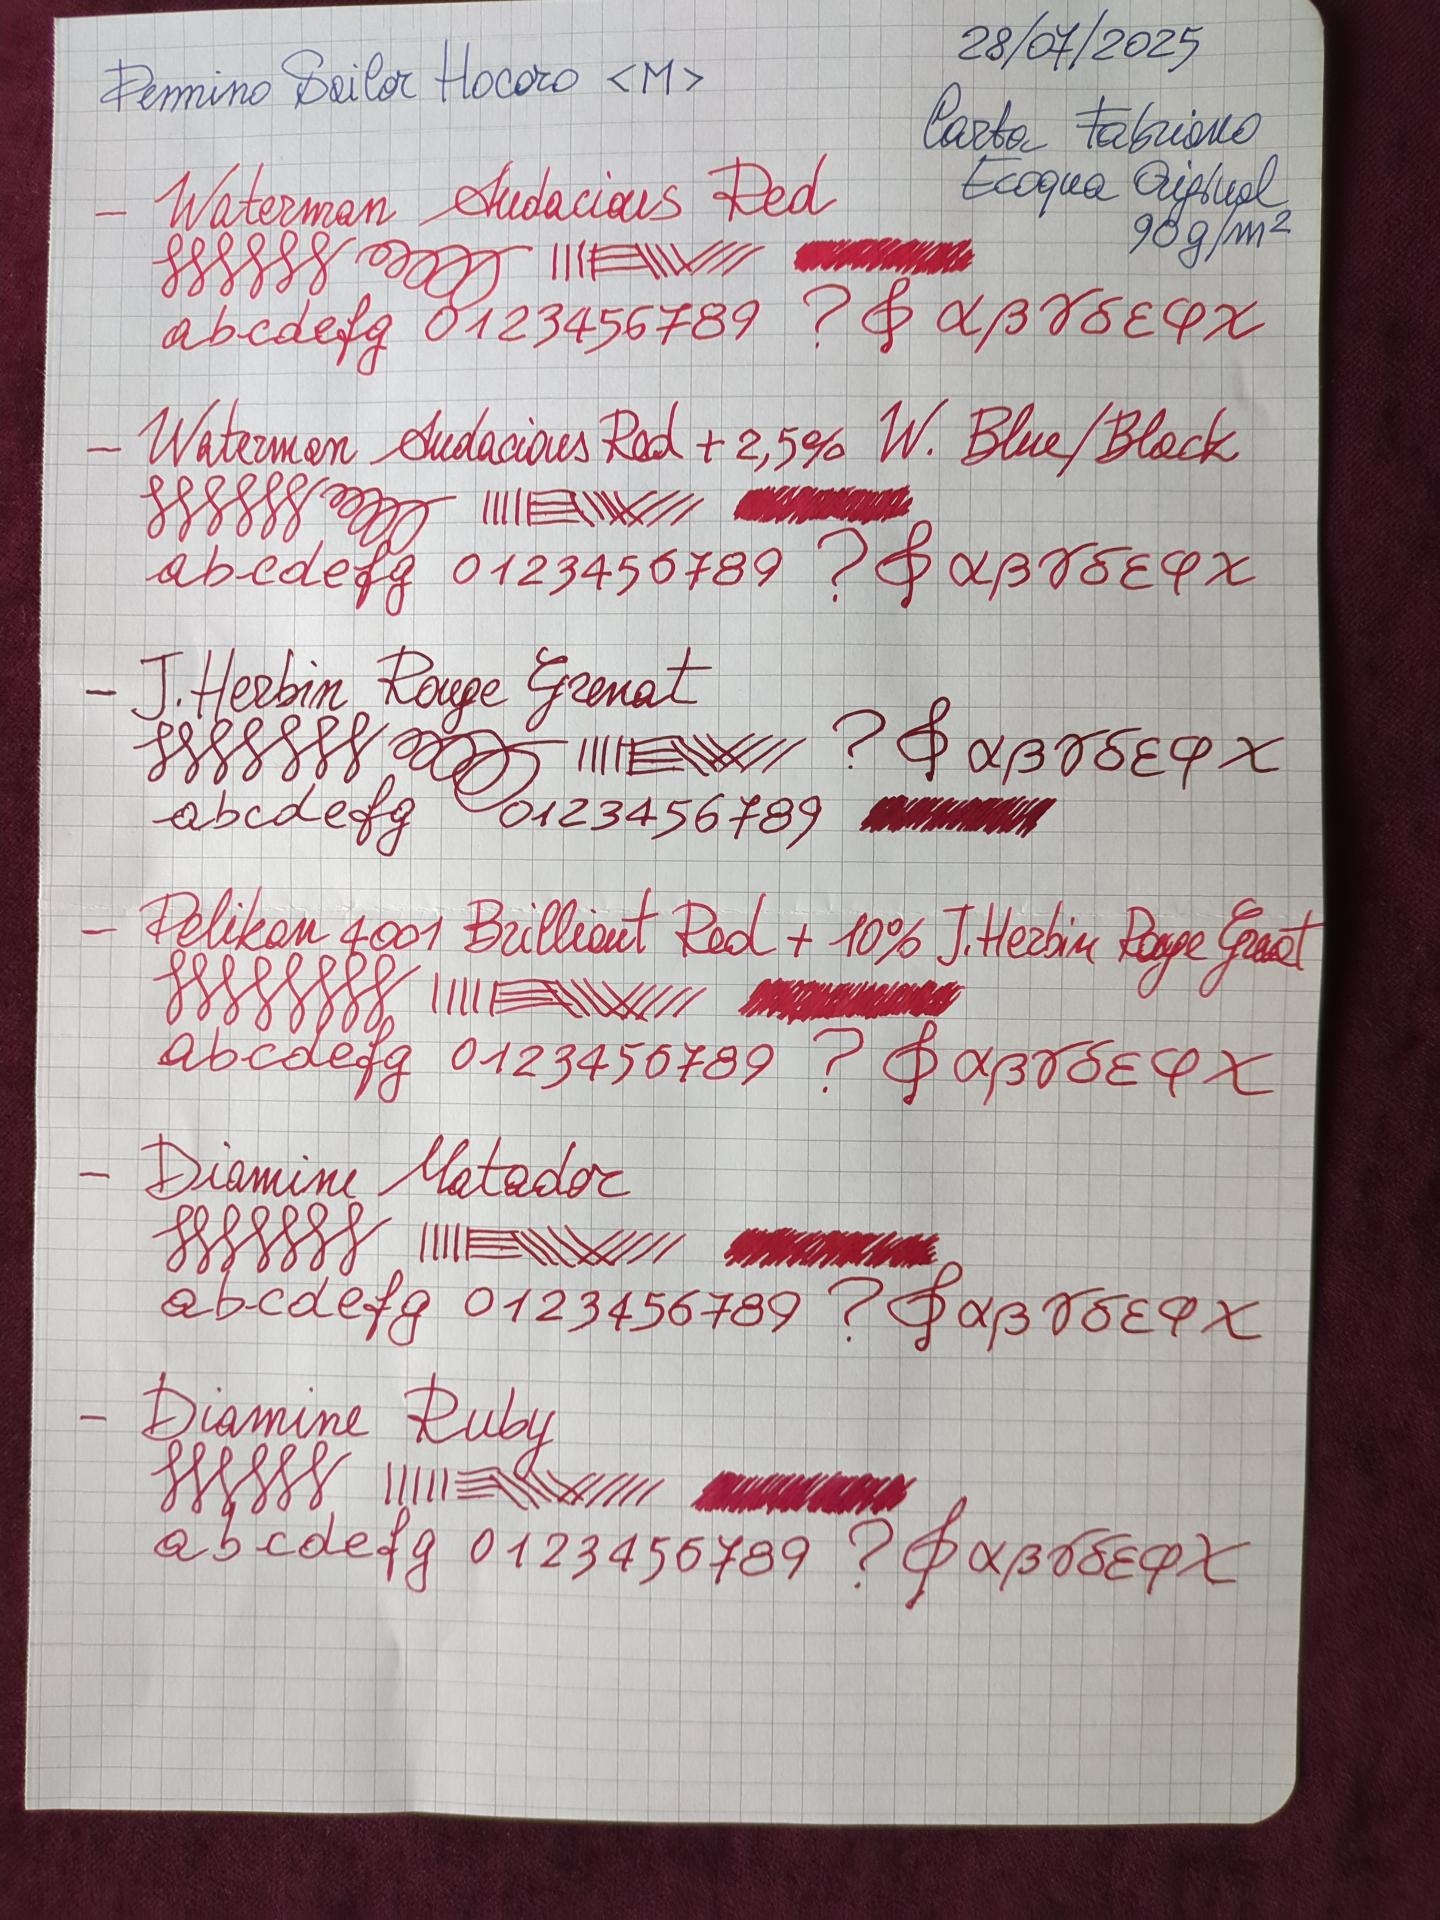 28/07/2025
Pennino Sailor Hocoro <M>
Carta Fabriano
Ecoqua Original
90g/m²
- Waterman Audacious Red
abcdefg 0123456789 ? αβγδεφχ
- Waterman Audacious Red + 2,5% W. Blue/Black
abcdefg 0123456789 ? αβγδεφχ
- J.Herbin Rouge Grenat
? αβγδεφχ
abcdefg 0123456789
- Pelikan 4001 Brilliant Red + 10% J.Herbin Rouge Grenat
abcdefg 0123456789 ? αβγδεφχ
- Diamine Matador
abcdefg 0123456789 ? αβγδεφχ
- Diamine Ruby
abcdefg 0123456789 ? αβγδεφχ